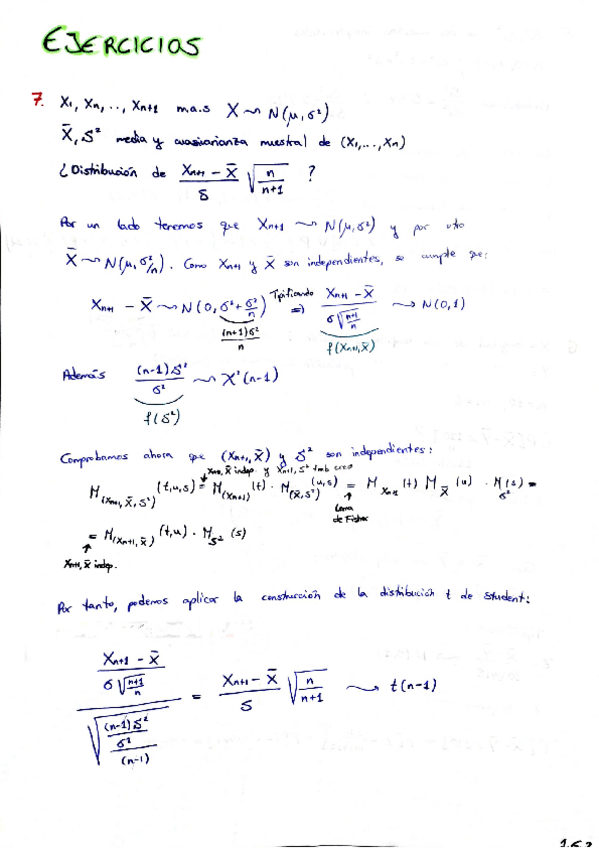 EJERCICIOS
7. X₁, Xₙ, .., Xₙ₊₁ m.a.s X ⤳ N(μ, σ²)
X̄, S² media y cuasivarianza muestral de (X₁, ..., Xₙ)
¿Distribución de (Xₙ₊₁ − X̄)/S √(n/(n+1)) ?
Por un lado tenemos que Xₙ₊₁ ⤳ N(μ, σ²) y por otro
X̄ ⤳ N(μ, σ²/n). Como Xₙ₊₁ y X̄ son independientes, se cumple que:
Xₙ₊₁ − X̄ ⤳ N(0, σ² + σ²/n) Tipificando ⇒ (Xₙ₊₁ − X̄)/(σ√((n+1)/n)) ⤳ N(0,1)
(n+1)σ²/n f(Xₙ₊₁, X̄)
Además (n−1)S²/σ² ⤳ χ²(n−1)
f(S²)
Comprobamos ahora que (Xₙ₊₁, X̄) y S² son independientes:
Xₙ₊₁, X̄ indep. y Xₙ₊₁, S² tmb creo
M(Xₙ₊₁, X̄, S²)(t,u,s) = M(Xₙ₊₁)(t) · M(X̄, S²)(u,s) = M Xₙ₊₁(t) M X̄(u) · M S²(s) =
Lema de Fisher
= M(Xₙ₊₁, X̄)(t,u) · M S²(s)
Xₙ₊₁, X̄ indep.
Por tanto, podemos aplicar la construcción de la distribución t de student:
((Xₙ₊₁ − X̄)/(σ√((n+1)/n))) / √(((n−1)S²/σ²)/(n−1)) = (Xₙ₊₁ − X̄)/S √(n/(n+1)) ⤳ t(n−1)